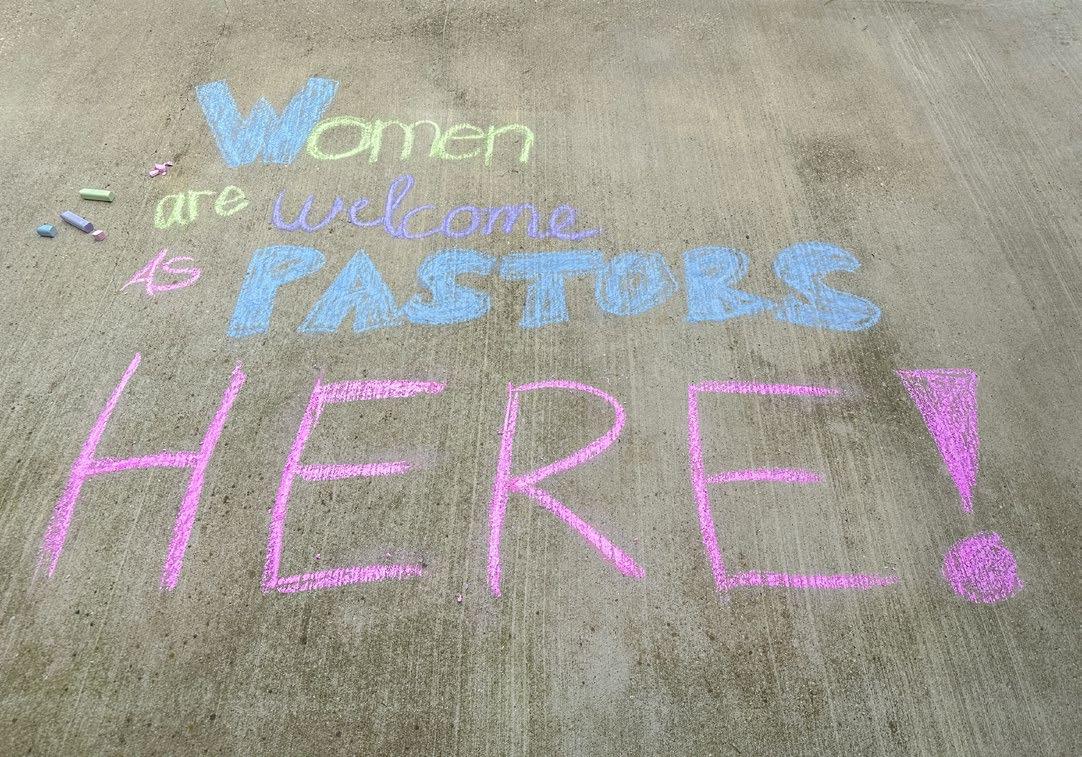 Women
are welcome
AS PASTORS
HERE!